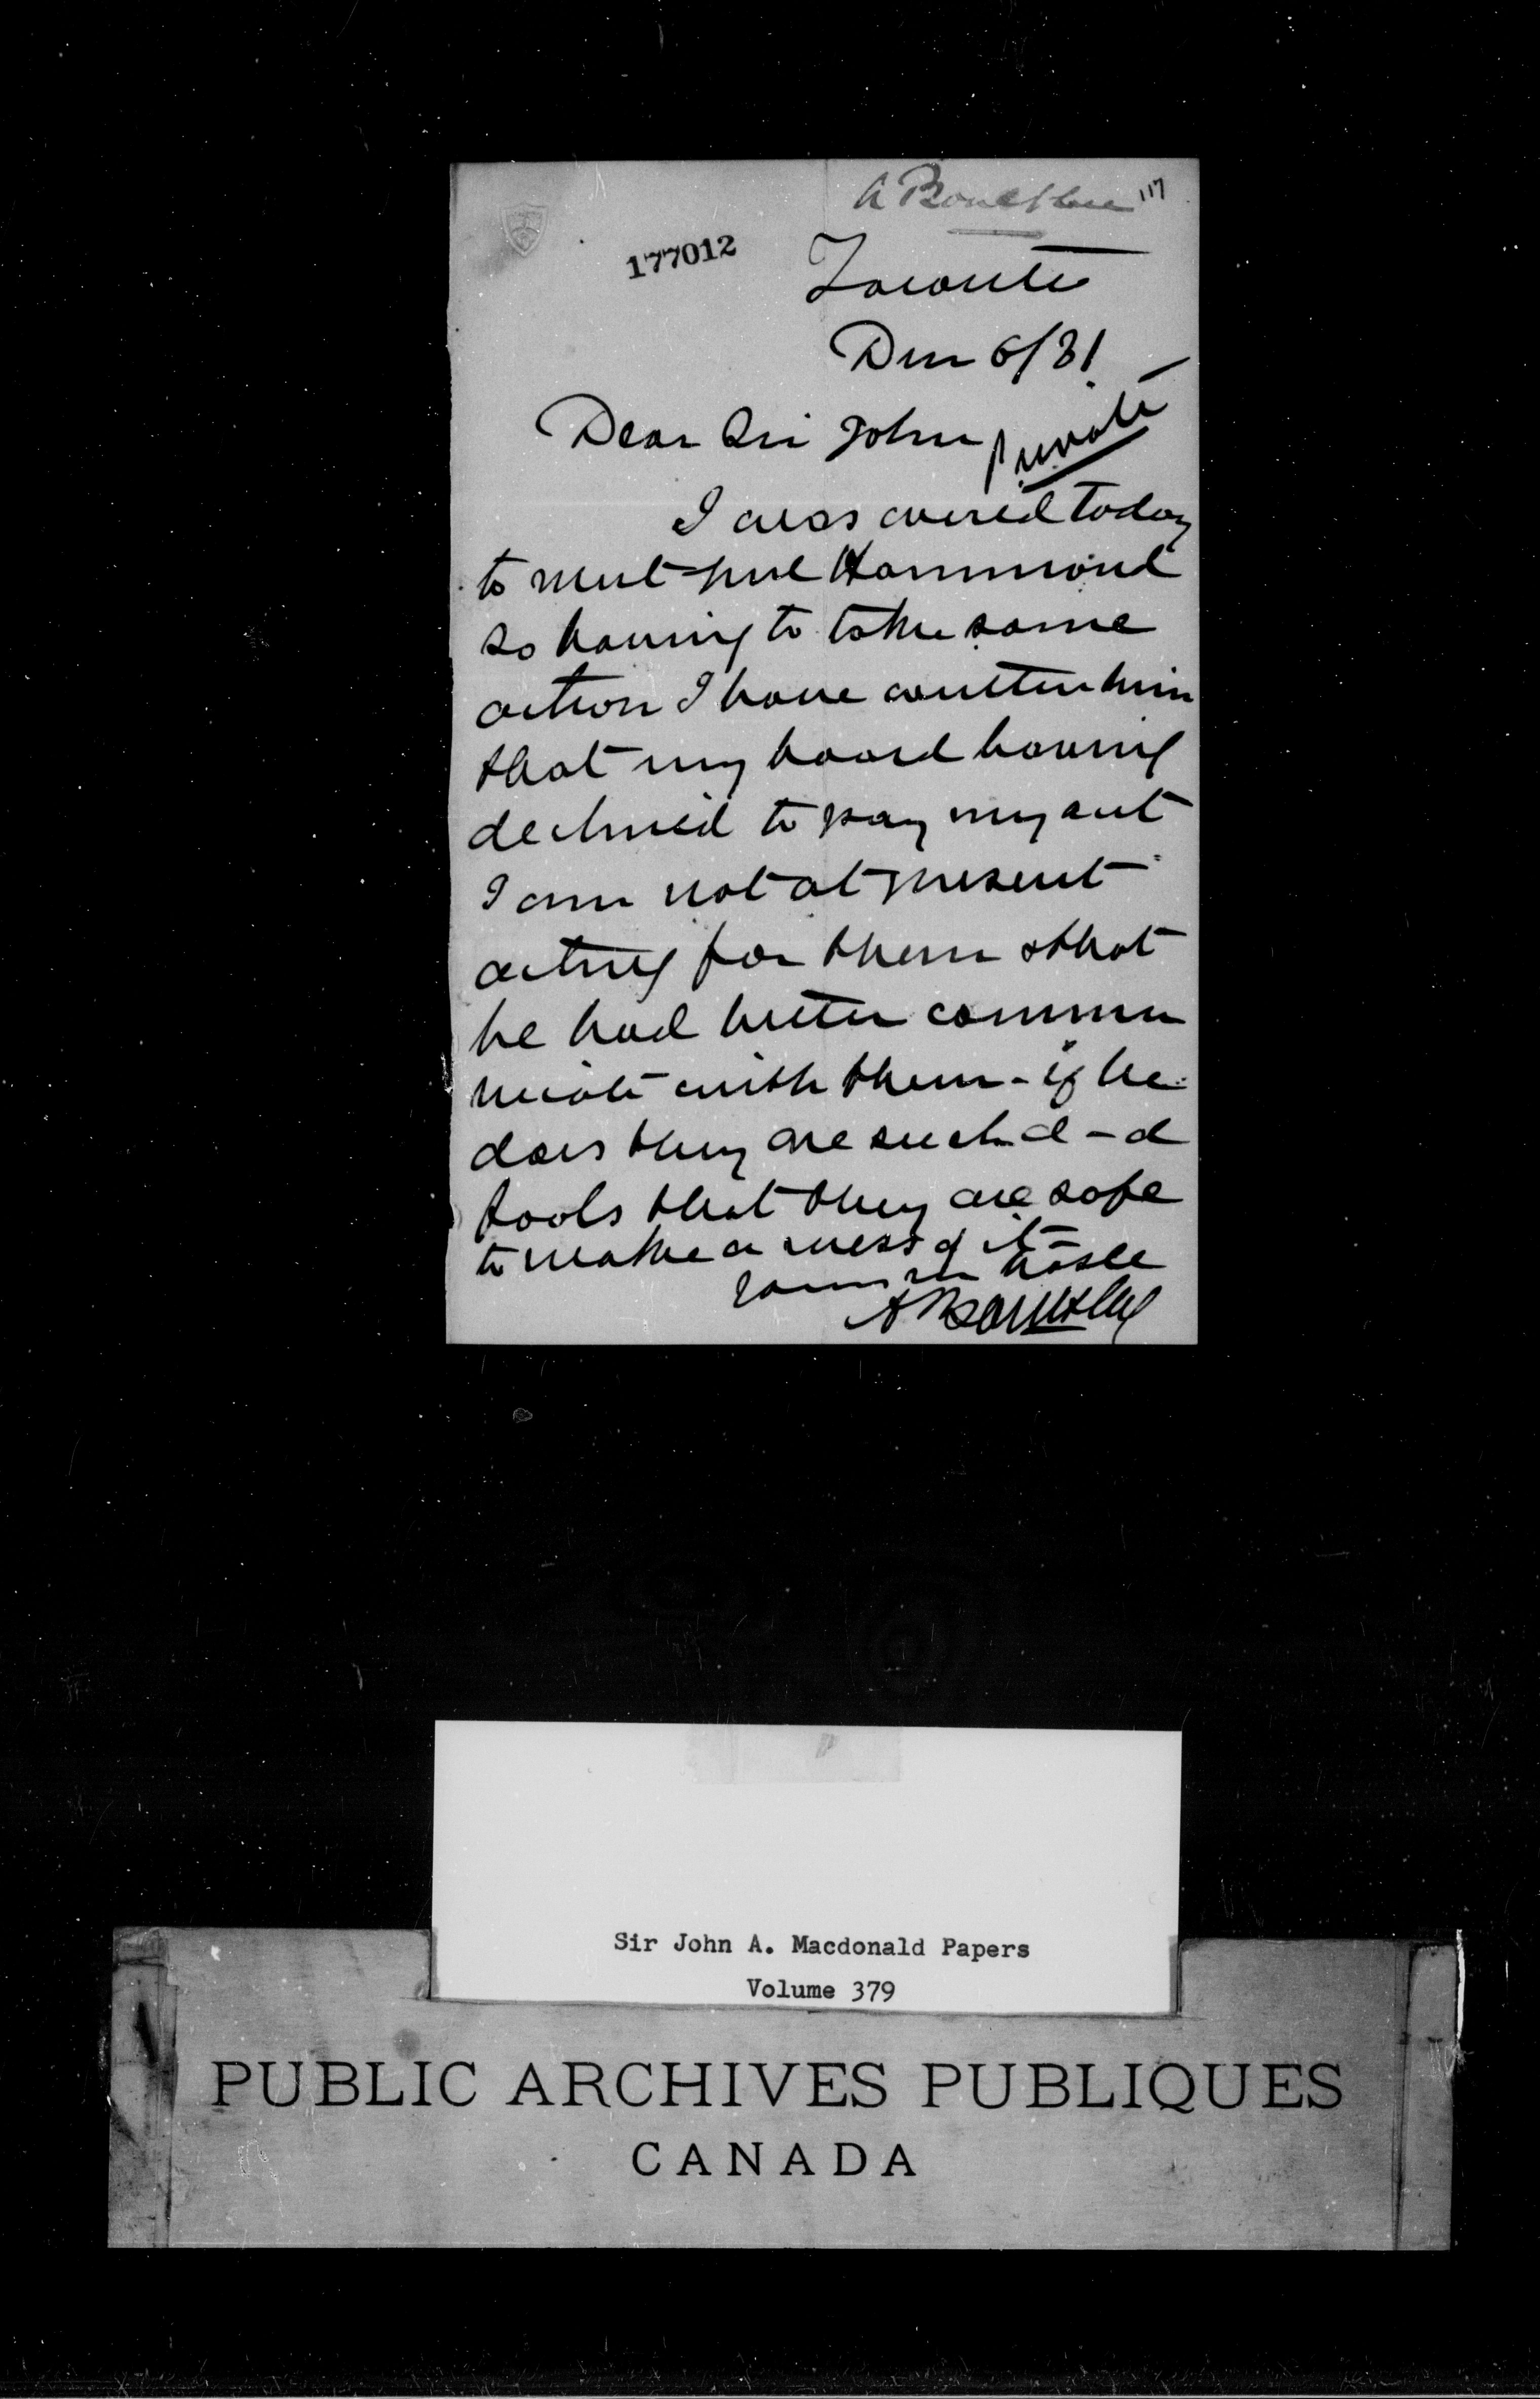 A Boultbee 117
177012
Toronto
Dec 6/81
Dear Sir John
Private
I was wired today
to meet Hammond
so having to take some
action I have written him
that my board having
declined to pay my acct
I am not at present
acting for them & that
he had better commu
nicate with them - if he
does they are such d-d
fools that they are safe
to make a mess of it -
Yours in haste
A Boultbee
Sir John A. Macdonald Papers
Volume 379
PUBLIC ARCHIVES PUBLIQUES
CANADA